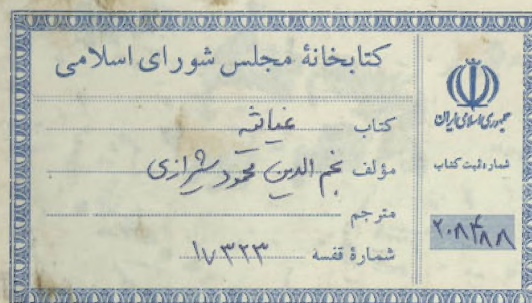 کتابخانهٔ مجلس شورای اسلامی
کتاب غیاثیه
مؤلف نجم الدین محمود شیرازی
مترجم
شمارهٔ قفسه ۱۷۳۲۳
جمهوری اسلامی ایران
شماره ثبت کتاب